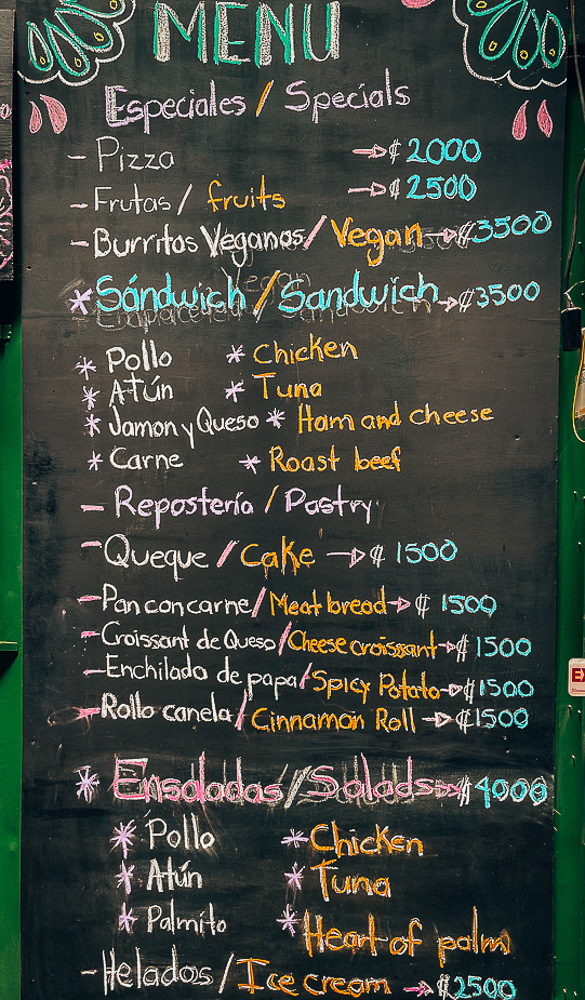 MENU
Especiales / Specials
- Pizza → ₡ 2000
- Frutas / fruits → ₡ 2500
- Burritos Veganos / Vegan → ₡3500
* Sándwich / Sandwich → ₡3500
* Pollo * Chicken
* Atún * Tuna
* Jamon y Queso * Ham and cheese
* Carne * Roast beef
- Repostería / Pastry
- Queque / Cake → ₡ 1500
- Pan con carne / Meat bread → ₡ 1500
- Croissant de Queso / Cheese croissant → ₡ 1500
- Enchilado de papa / Spicy Potato → ₡1500
- Rollo canela / Cinnamon Roll → ₡1500
* Ensaladas / Salads → ₡ 4000
* Pollo * Chicken
* Atún * Tuna
* Palmito * Heart of palm
- Helados / Ice cream → ₡2500